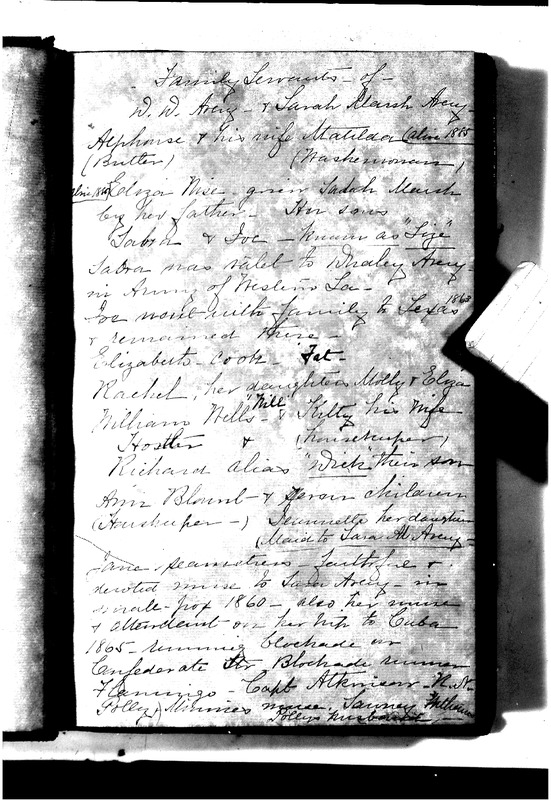 Family Servants - of -
D. D. Avery - & Sarah Marsh Avery -
"Alphonse & his wife Matilda (alive 1865
(Butler) (Washerwoman)
alive 1865 Eliza Wise - given Sarah Marsh
by her father - Her sons
Sabra & Joe - known as "Size"
Sabra was valet to Dudley Avery -
in Army of Western La -
Joe went with family to Texas 1863
& remained there -
Elizabeth - Cook - Fat
Rachel, her daughters Molly & Eliza
William Wells - "Will" & Kitty his wife
Hostler & (housekeeper)
Richard alias "Dick" their son
Ann Blount - & seven children
(Housekeeper -) Jeannette her daughter
(Maid to Sara M. Avery -
Jane seamstress faithful &
devoted nurse to Sara Avery - in
small-pox 1860 - also her nurse
& attendant on her trip to Cuba
1865 - running blockade on
Confederate Str. Blockade runner
Flamingo - Capt Atkinson - R. N. -
Polly) Minnie's nurse. Tawney William
Polly's husband